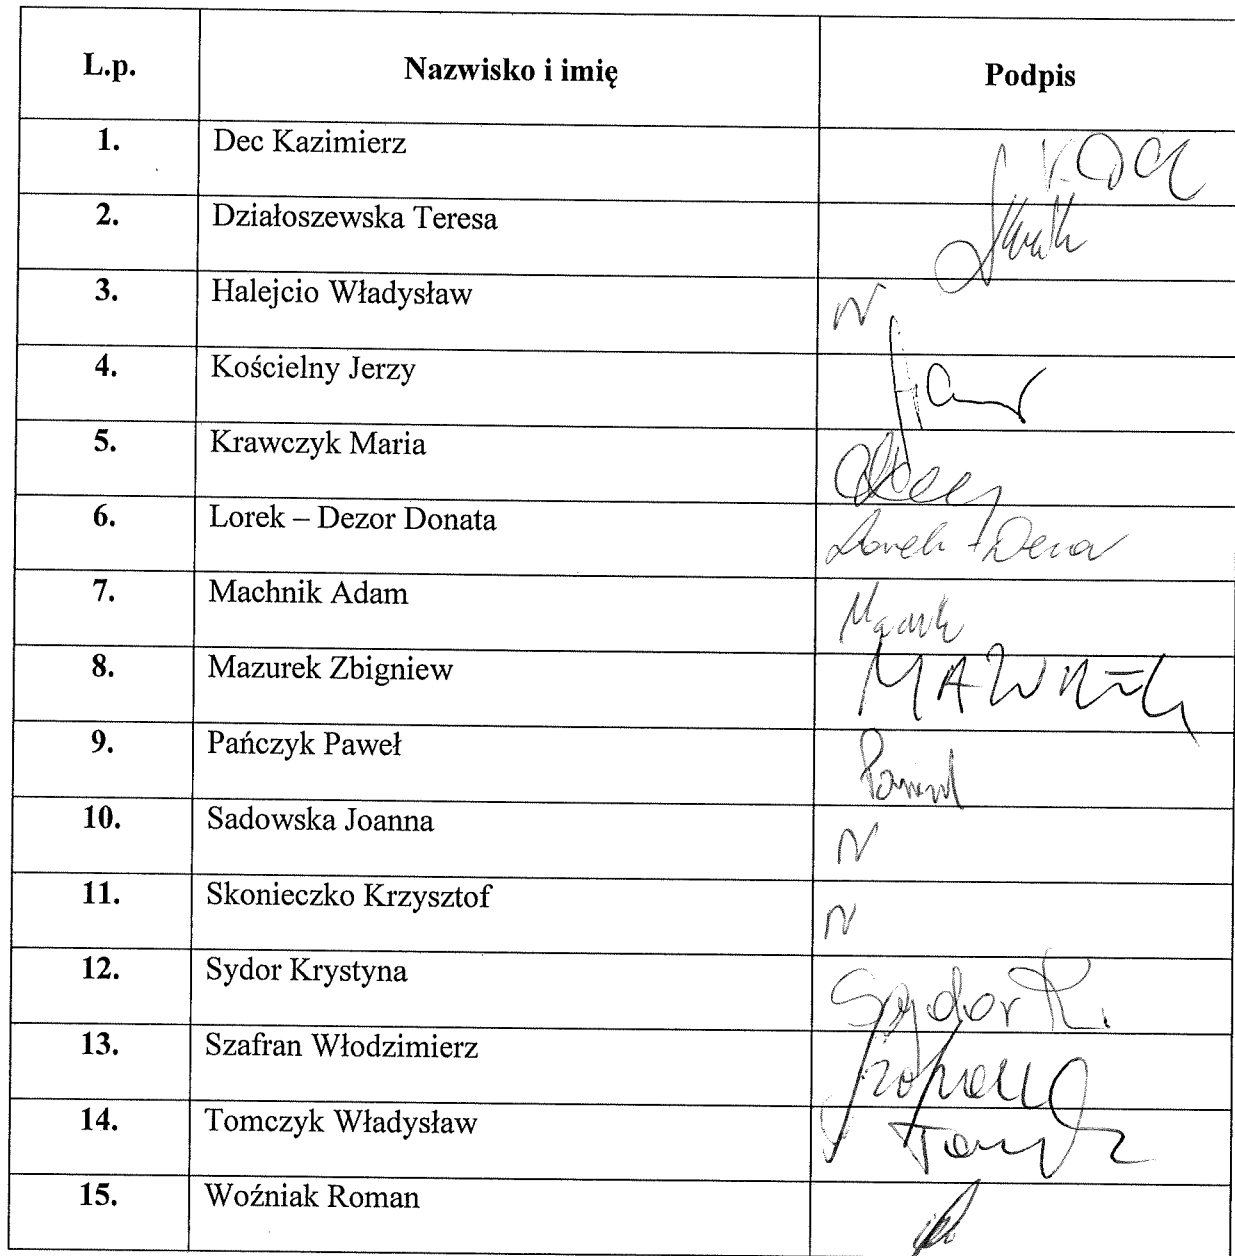 L.p. Nazwisko i imię Podpis
1. Dec Kazimierz
2. Działoszewska Teresa
3. Halejcio Władysław N
4. Kościelny Jerzy
5. Krawczyk Maria
6. Lorek – Dezor Donata
7. Machnik Adam
8. Mazurek Zbigniew
9. Pańczyk Paweł
10. Sadowska Joanna N
11. Skonieczko Krzysztof N
12. Sydor Krystyna Sydor K.
13. Szafran Włodzimierz
14. Tomczyk Władysław
15. Woźniak Roman